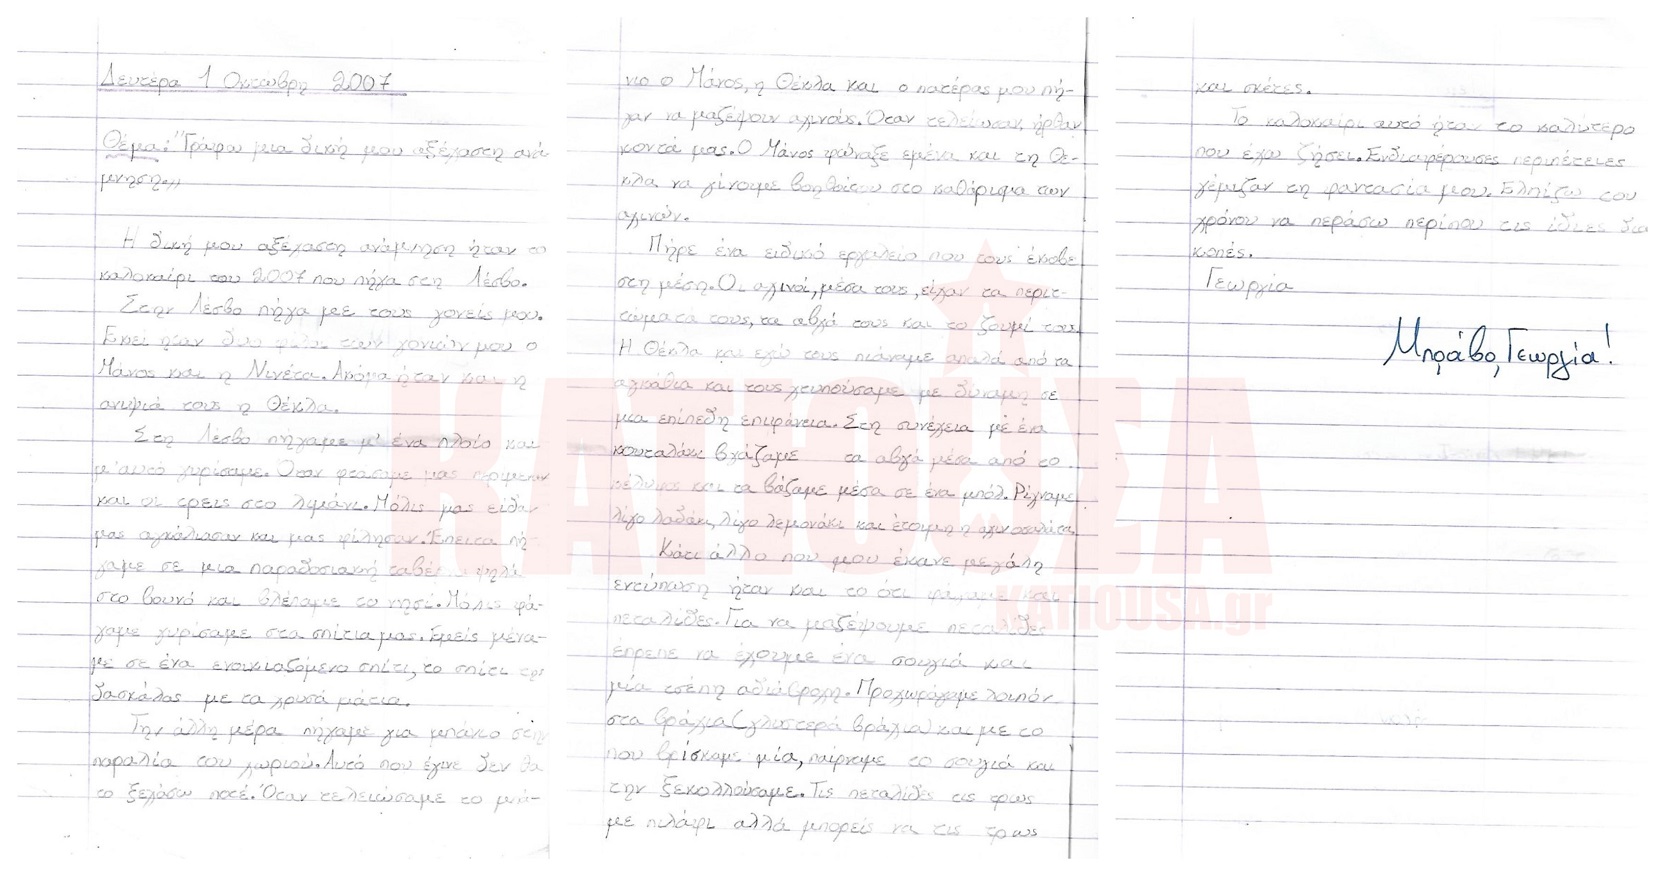 Δευτέρα 1 Οκτώβρη 2007
Θέμα: "Γράφω μια δική μου αξέχαστη ανά
μνηση,,
Η δική μου αξέχαστη ανάμνηση ήταν το
καλοκαίρι του 2007 που πήγα στη Λέσβο.
Στην Λέσβο πήγα με τους γονείς μου.
Εκεί ήταν δυο φίλοι των γονιών μου ο
Μάνος και η Νινέτα. Ακόμα ήταν και η
ανιψιά τους η Θέκλα.
Στη Λέσβο πήγαμε μ' ένα πλοίο και
μ' αυτό γυρίσαμε. Όταν φτάσαμε μας περίμεναν
και οι τρεις στο λιμάνι. Μόλις μας είδαν
μας αγκάλιασαν και μας φίλησαν. Έπειτα πή-
γαμε σε μια παραδοσιακή ταβέρ ψηλά
στο βουνό και βλέπαμε το νησί. Μόλις φά-
γαμε γυρίσαμε στα σπίτια μας. Εμείς μένα-
με σε ένα ενοικιαζόμενο σπίτι, το σπίτι της
δασκάλας με τα χρυσά μάτια.
Την άλλη μέρα πήγαμε για μπάνιο στην
παραλία του χωριού. Αυτό που έγινε δεν θα
το ξεχάσω ποτέ. Όταν τελειώσαμε το μπά-
νιο ο Μάνος, η Θέκλα και ο πατέρας μου πή-
γαν να μαζέψουν αχινούς. Όταν τελείωσαν, ήρθαν
κοντά μας. Ο Μάνος φώναξε εμένα και τη Θέ-
κλα να γίνουμε βοηθοί του στο καθάρισμα των
αχινών.
Πήρε ένα ειδικό εργαλείο που τους έκοβε
στη μέση. Οι αχινοί, μέσα τους, είχαν τα περιτ-
τώματά τους, τα αβγά τους και το ζουμί τους.
Η Θέκλα και εγώ τους πιάναμε απαλά από τα
αγκάθια και τους χτυπούσαμε με δύναμη σε
μια επίπεδη επιφάνεια. Στη συνέχεια με ένα
κουταλάκι βγάζαμε τα αβγά μέσα από το
κέλυφος και τα βάζαμε μέσα σε ένα μπόλ. Ρίχναμε
λίγο λαδάκι, λίγο λεμονάκι και έτοιμη η αχινοσαλάτα.
Κάτι άλλο που μου έκανε μεγάλη
εντύπωση ήταν και το ότι φάγαμε και
πεταλίδες. Για να μαζέψουμε πεταλίδες
έπρεπε να έχουμε ένα σουγιά και
μία τσέπη αδιάβροχη. Προχωράγαμε λοιπόν
στα βράχια (γλυστερά βράχια) και με το
που βρίσκαμε μία, παίρναμε το σουγιά και
την ξεκολλούσαμε. Τις πεταλίδες τις φάμε
με πιλάφι αλλά μπορείς να τις τρως
και σκέτες.
Το καλοκαίρι αυτό ήταν το καλύτερο
που έχω ζήσει. Ενδιαφέρουσες περιπέτειες
γέμιζαν τη φαντασία μου. Ελπίζω του
χρόνου να περάσω περίπου τις ίδιες δια
κοπές.
Γεωργία
Μπράβο, Γεωργία!
ΚΑΤΙΟΥΣΑ
KATIOUSA.gr